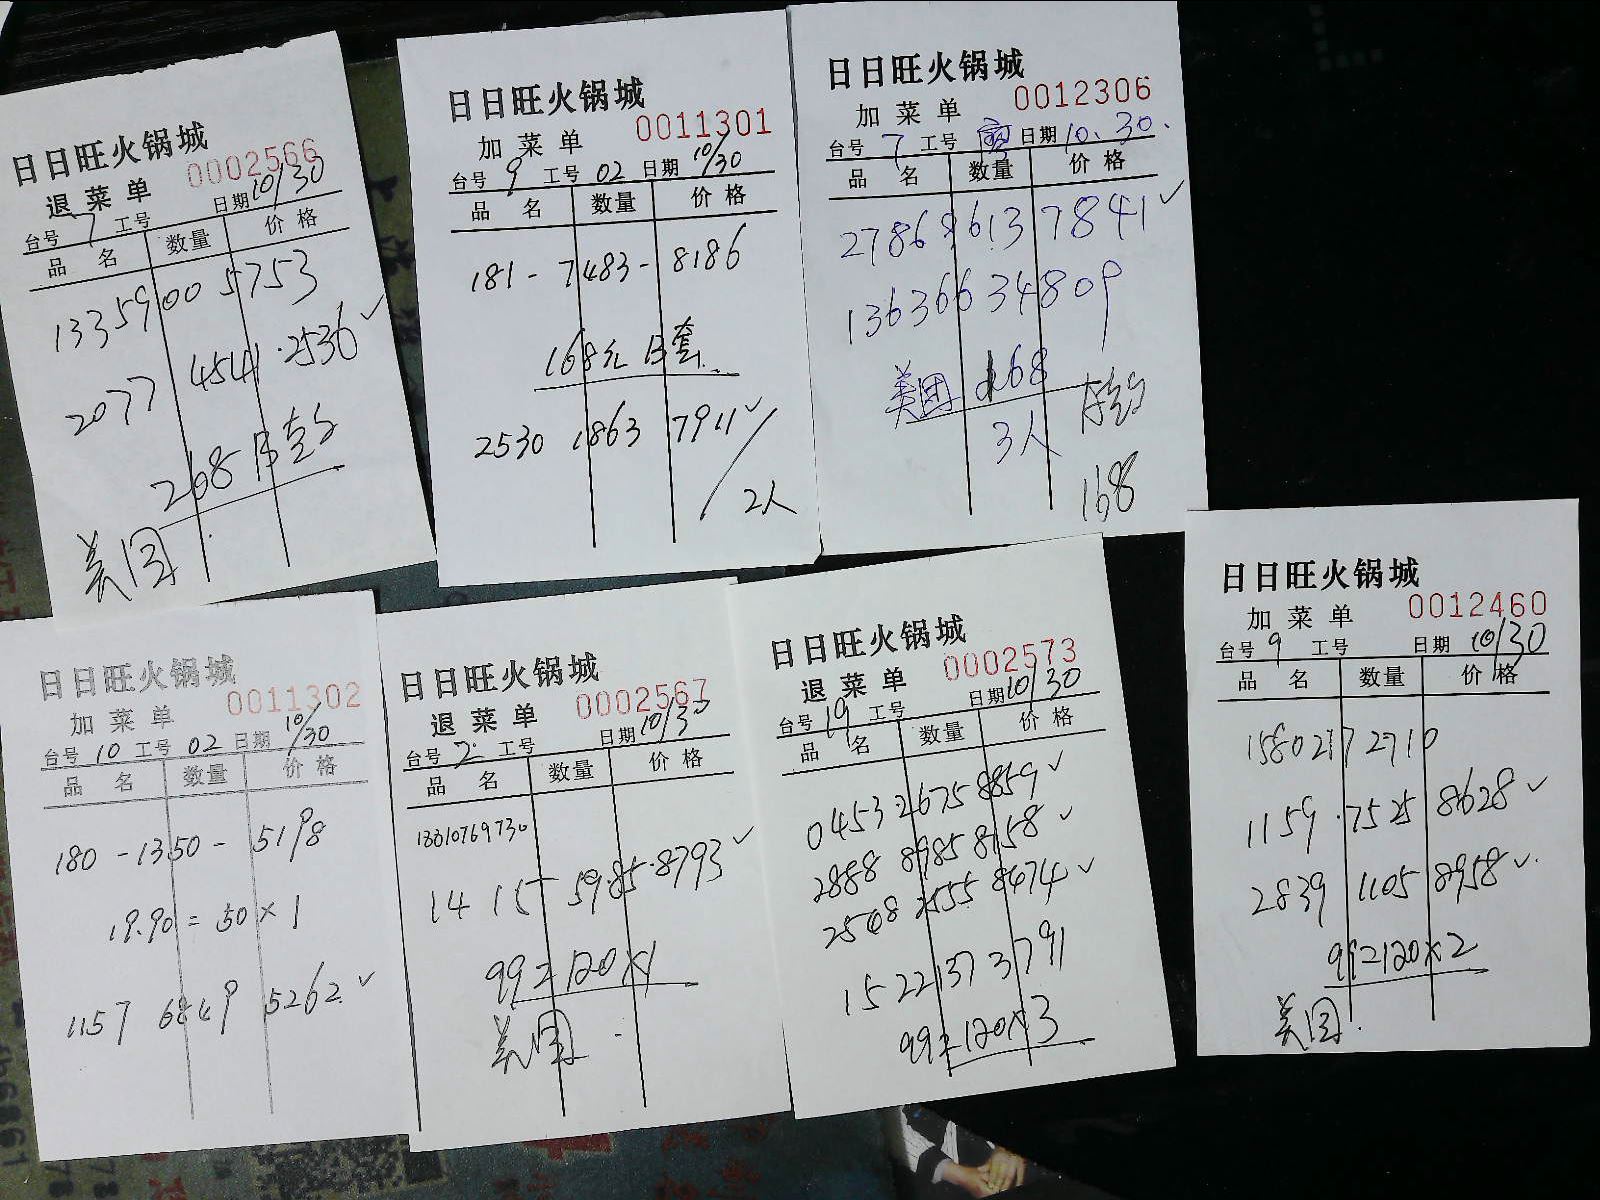 日日旺火锅城
0002566
退菜单
台号 7 工号 日期 10/30
品名 数量 价格
13359005753
2077 4541·2536✓
268
美团
日日旺火锅城
0011301
加菜单
台号 9 工号 02 日期 10/30
品名 数量 价格
181-7483-8186
168元
2530 1863 7911✓
2人
日日旺火锅城
0012306
加菜单
台号 7 工号 日期 10.30.
品名 数量 价格
27868 613 7841✓
13636634809
美团 168
3人
168
日日旺火锅城
0011302
加菜单
台号 10 工号 02 日期 10/30
品名 数量 价格
180-1350-5198
19.90=50×1
1157 6849 5262✓
日日旺火锅城
0002567
退菜单
台号 2 工号 日期 10/30
品名 数量 价格
13310769730
1415 5985·8793✓
99=120×1
美团
日日旺火锅城
0002573
退菜单
台号 19 工号 日期 10/30
品名 数量 价格
0453 2675 8859✓
2888 8985 8158✓
2508 2555 8474✓
15221373791
99=120×3
日日旺火锅城
0012460
加菜单
台号 9 工号 日期 10/30
品名 数量 价格
15802172710
1159·7525 8628✓
2839 1105 8958✓
99=120×2
美团